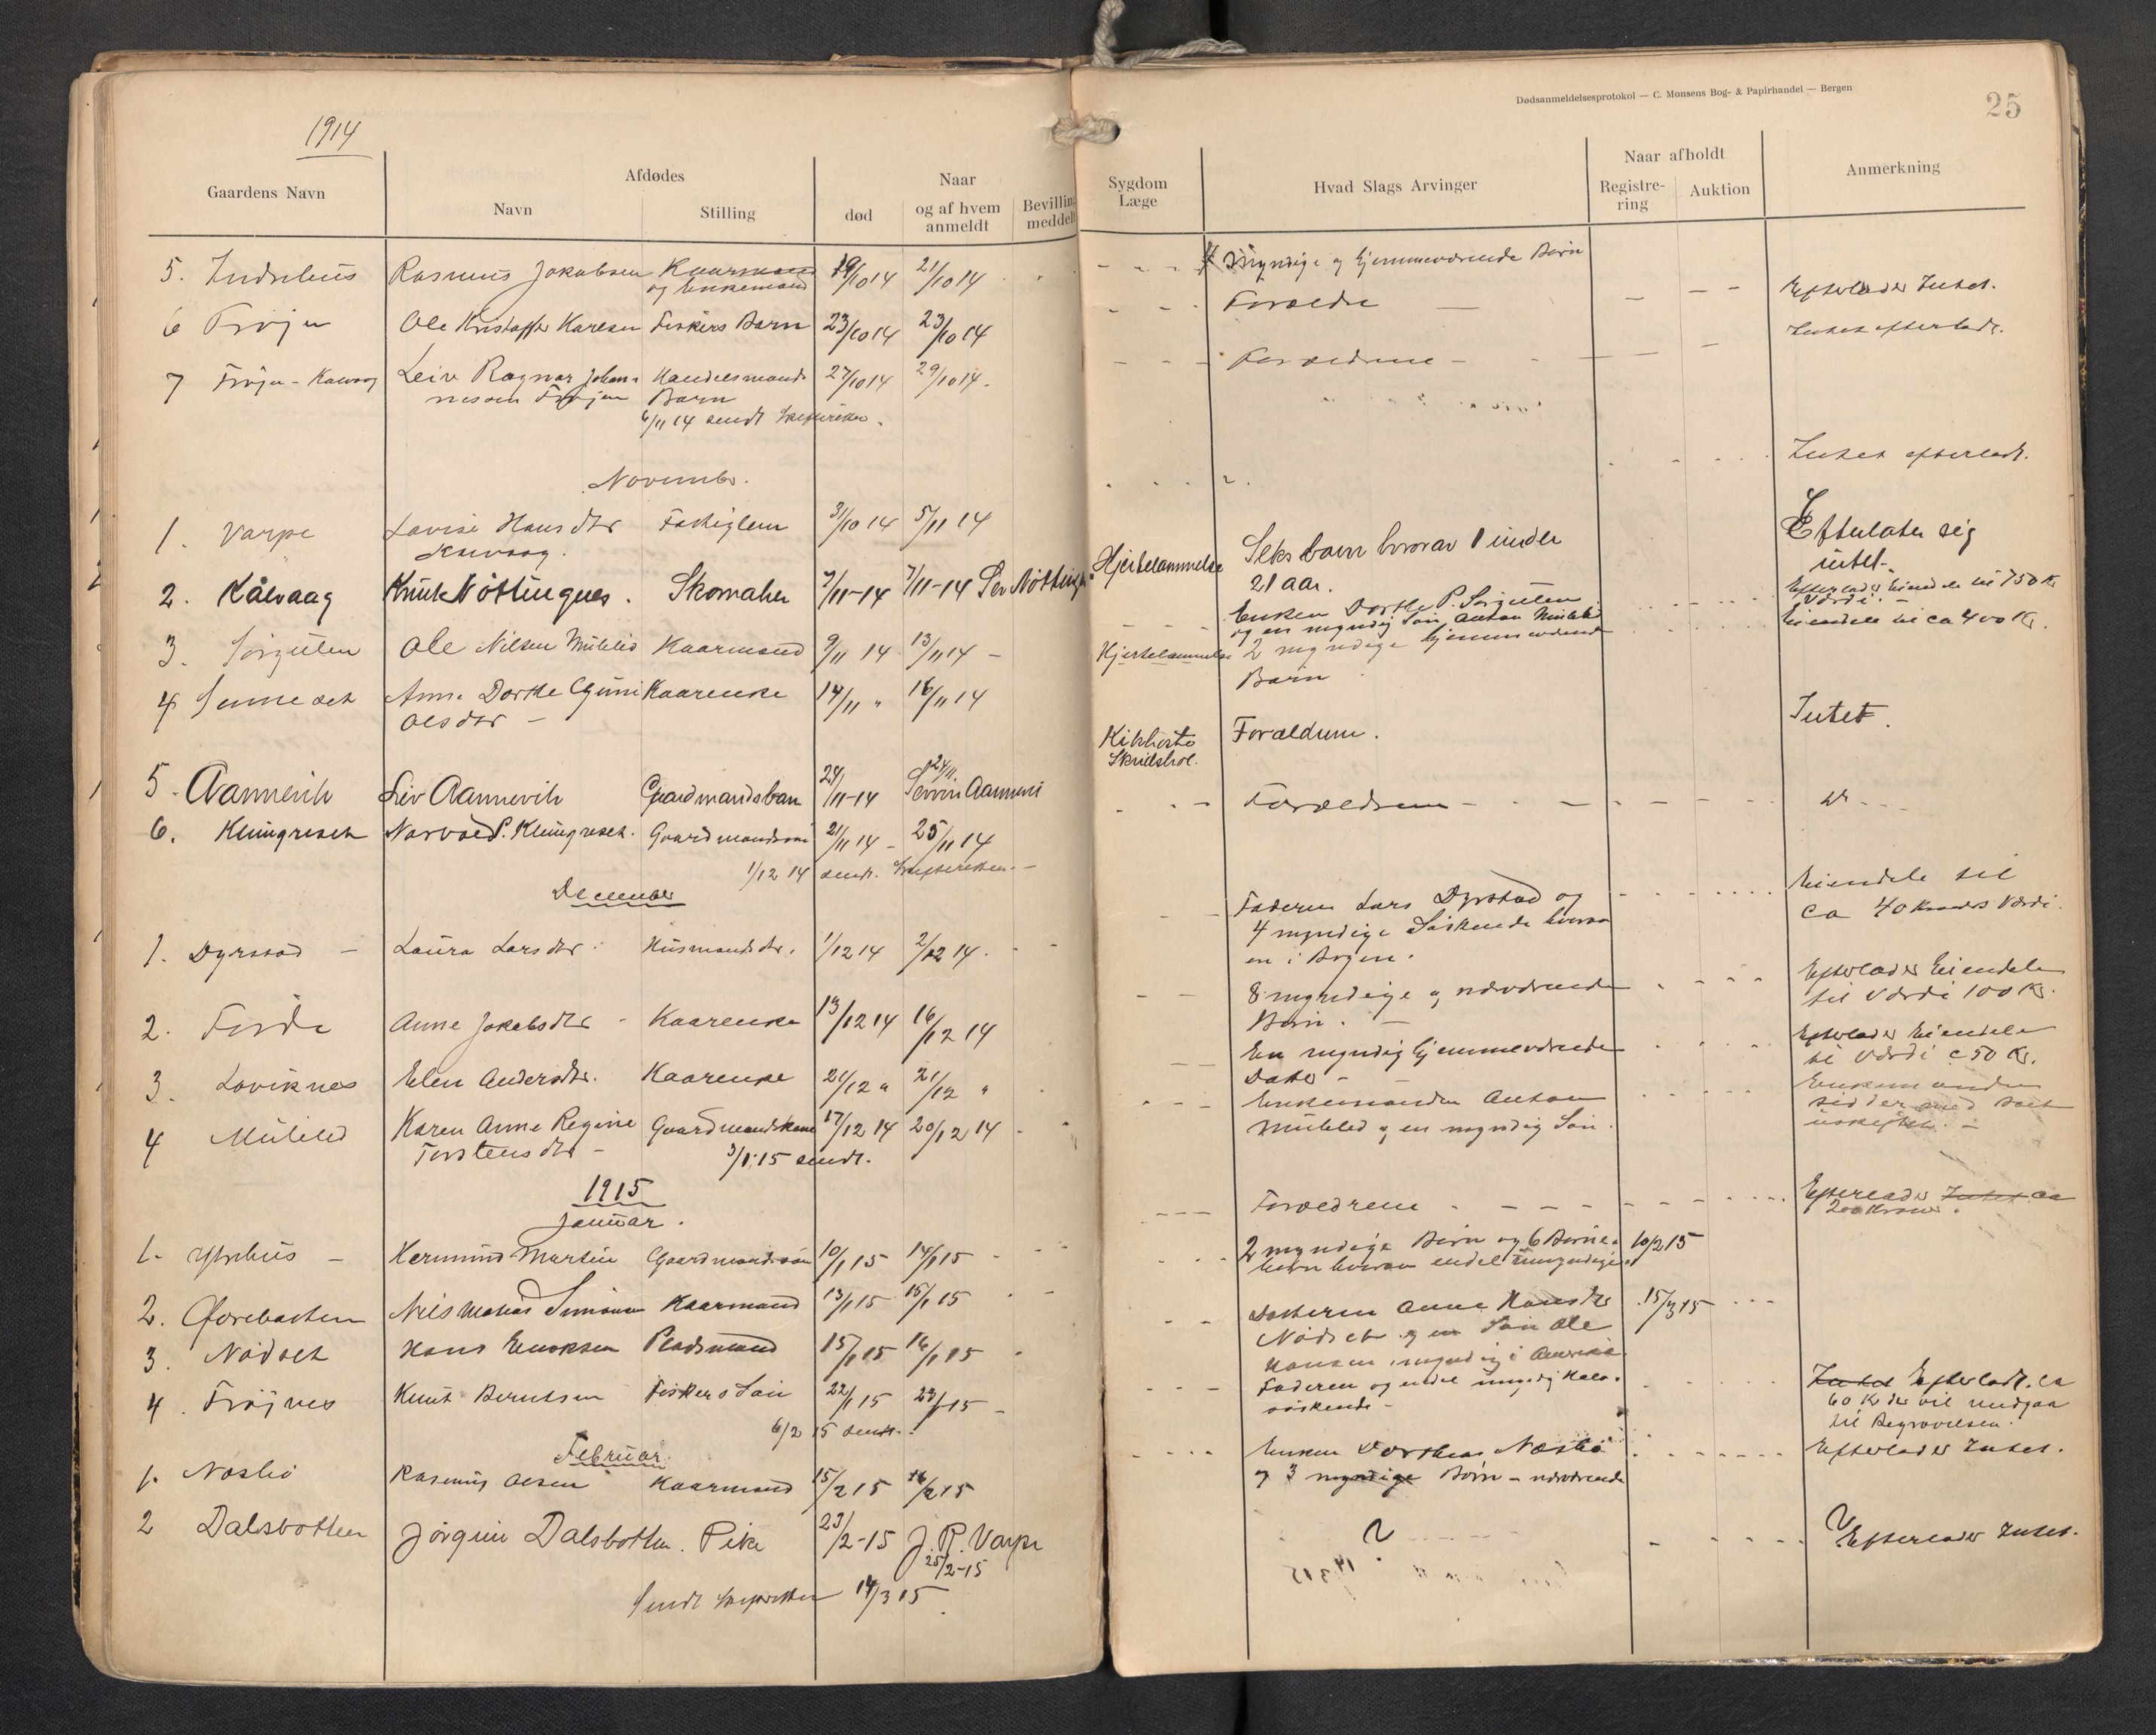 1914
Dødsanmeldelsesprotokol — C. Monsens Bog- & Papirhandel — Bergen
25
Gaardens Navn
Afdødes
Navn
Stilling
Naar
død
og af hvem anmeldt
Bevilling meddelt
Sygdom
Læge
Hvad Slags Arvinger
Naar afholdt
Registrering
Auktion
Anmerkning
5. Indrehus Rasmus Jakobsen Kaarmand 19/10 14 21/10 14 myndige og hjemmeværende Børn
og Enkemand
6 Frøjen Ole Kristoffer Karlsen Fiskers Barn 23/10 14 23/10 14 Forældre Efterlader Intet.
7 Frøjen - Kalvaag Leiv Ragnar Johan- Handelsmands 27/10 14 29/10 14. Forældrene - Intet efterladt.
nessen Frøjen Barn
6/11 14 sendt Skifteretten.
November.
1. Varpe Lovise Hansdtr Fattiglem 31/10 14 5/11 14 Intet efterladt.
Kalvaag.
2. Kålvaag Knut Nøttingnes. Skomaker 7/11-14 7/11-14 Hjertelammelse Seks barn hvorav 1 under Efterlater sig
21 aar. intet.
3. Sørgulen Ole Nilsen Myklebs Kaarmand 9/11 14 13/11 14 - Enken Dorthe P. Sørgulen Efterlader Eiendele til 750 Kr
og en myndig Søn Anton Værdi. -
4 Senneset Anne Dorthe Guni Kaarenke 14/11 " 16/11 14 Hjertelammelse 2 myndige hjemmeværende Eiendele til ca 400 Kr.
Olsdtr - Børn
5. Aannevik Liv Aannevik Gaardmandsbarn 24/11-14 24/11. Kikhoste Forældrene. Intet.
6. Klungreset Norvald P. Klungreset. Gaardmandssøn 21/11 14 - 25/11 14 Forældrene -
1/12 14 sendt. Skifteretten. -
December
1. Dyrstad - Laura Larsdtr. Husmandsdtr. 1/12 14 2/12 14. Faderen Lars Dyrstad og Eiendele til
4 myndige Søskende hvorav ca 40 Kroners Værdi.
en i Bergen.
2. Førde Anne Jakobsdtr - Kaarenke 13/12 14 16/12 14 8 myndige og nærværende Efterlader Eiendele
Børn. - til Værdi 100 Kr.
3. Loviknes Elen Andersdtr. Kaarenke 21/12 " 21/12 " En myndig hjemmeværende Efterlader Eiendele
Datter - til Værdi c 50 Kr.
4 Myklebd Karen Anne Regine Gaardmandskone 17/12 14 20/12 14 Enkemanden Anton Enkemanden
Torstensdtr - og en myndig Søn. sidder med boet
3/1 15 sendt. uskiftet. -
1915
Januar.
1. Ytrehus - Hermund Martin Gaardmandssøn 10/1 15 14/1 15 Forældrene Efterlader Intet ca
200 Kroner.
2. Øvrebotten Nils Matias Simonsen Kaarmand 13/1 15 15/1 15 2 myndige Børn og 6 Børne- 10/2 15
børn hvorav endel umyndige.
3. Nødset Hans Enoksen Pladsmand 15/1 15 16/1 15 Datteren Anne Hansdtr 15/3 15
Nødset og en Søn Ole
Hansen, myndig i Amerika
4. Frøjnes Knut Berntsen Fiskers Søn 22/1 15 23/1 15 - Faderen og endel myndig Halv- Intet Efterladt. ca
søskende - 60 Kr der vil medgaa
6/2 15 sendt. til Begravelsen.
Februar.
1. Næsbø Rasmus Olsen Kaarmand 15/2 15 16/2 15 Enken Dorthea Næsbø Efterlader Intet.
og 3 myndige Børn - nærværende
2 Dalsbotten Jørgine Dalsbotten. Pike 23/2-15 J. R. Varpe ? Efterlader Intet.
25/2-15
Sendt Skifteretten 14/3 15.